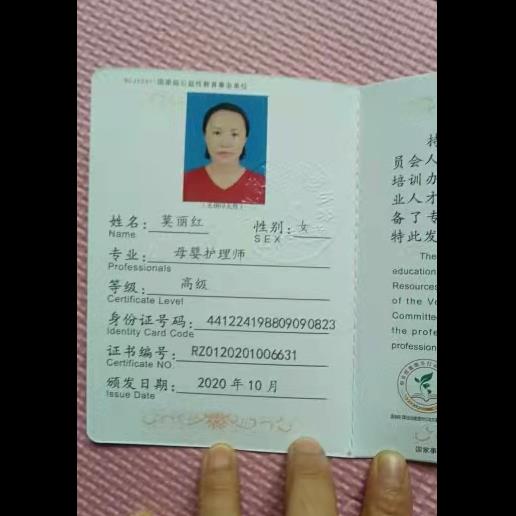 国家级公益性教育事业单位
姓名: 莫丽红
Name
性别: 女
SEX
专业: 母婴护理师
Professionals
等级: 高级
Certificate Level
身份证号码: 441224198809090823
Identity Card Code
证书编号: RZ0120201006631
Certificate NO.
颁发日期: 2020 年 10 月
Issue Date
持
员会人
培训办
业人才
备了专
特此发
The
education
Resources
of the Vo
Committe
the profe
profession
国家事